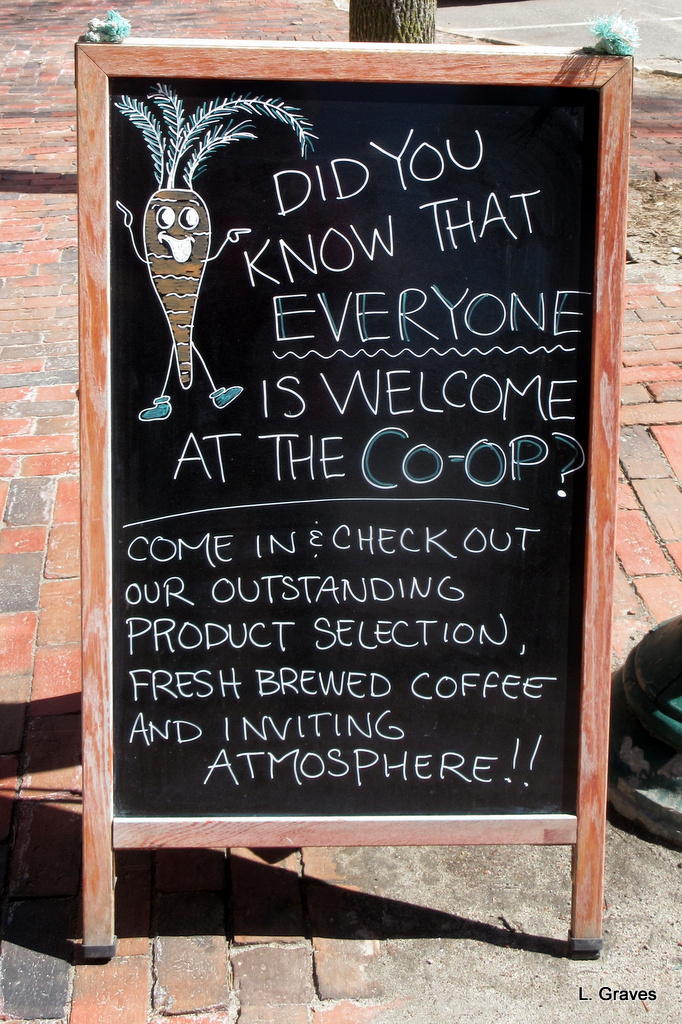 DID YOU
KNOW THAT
EVERYONE
IS WELCOME
AT THE CO-OP?
COME IN & CHECK OUT
OUR OUTSTANDING
PRODUCT SELECTION,
FRESH BREWED COFFEE
AND INVITING
ATMOSPHERE!!
L. Graves